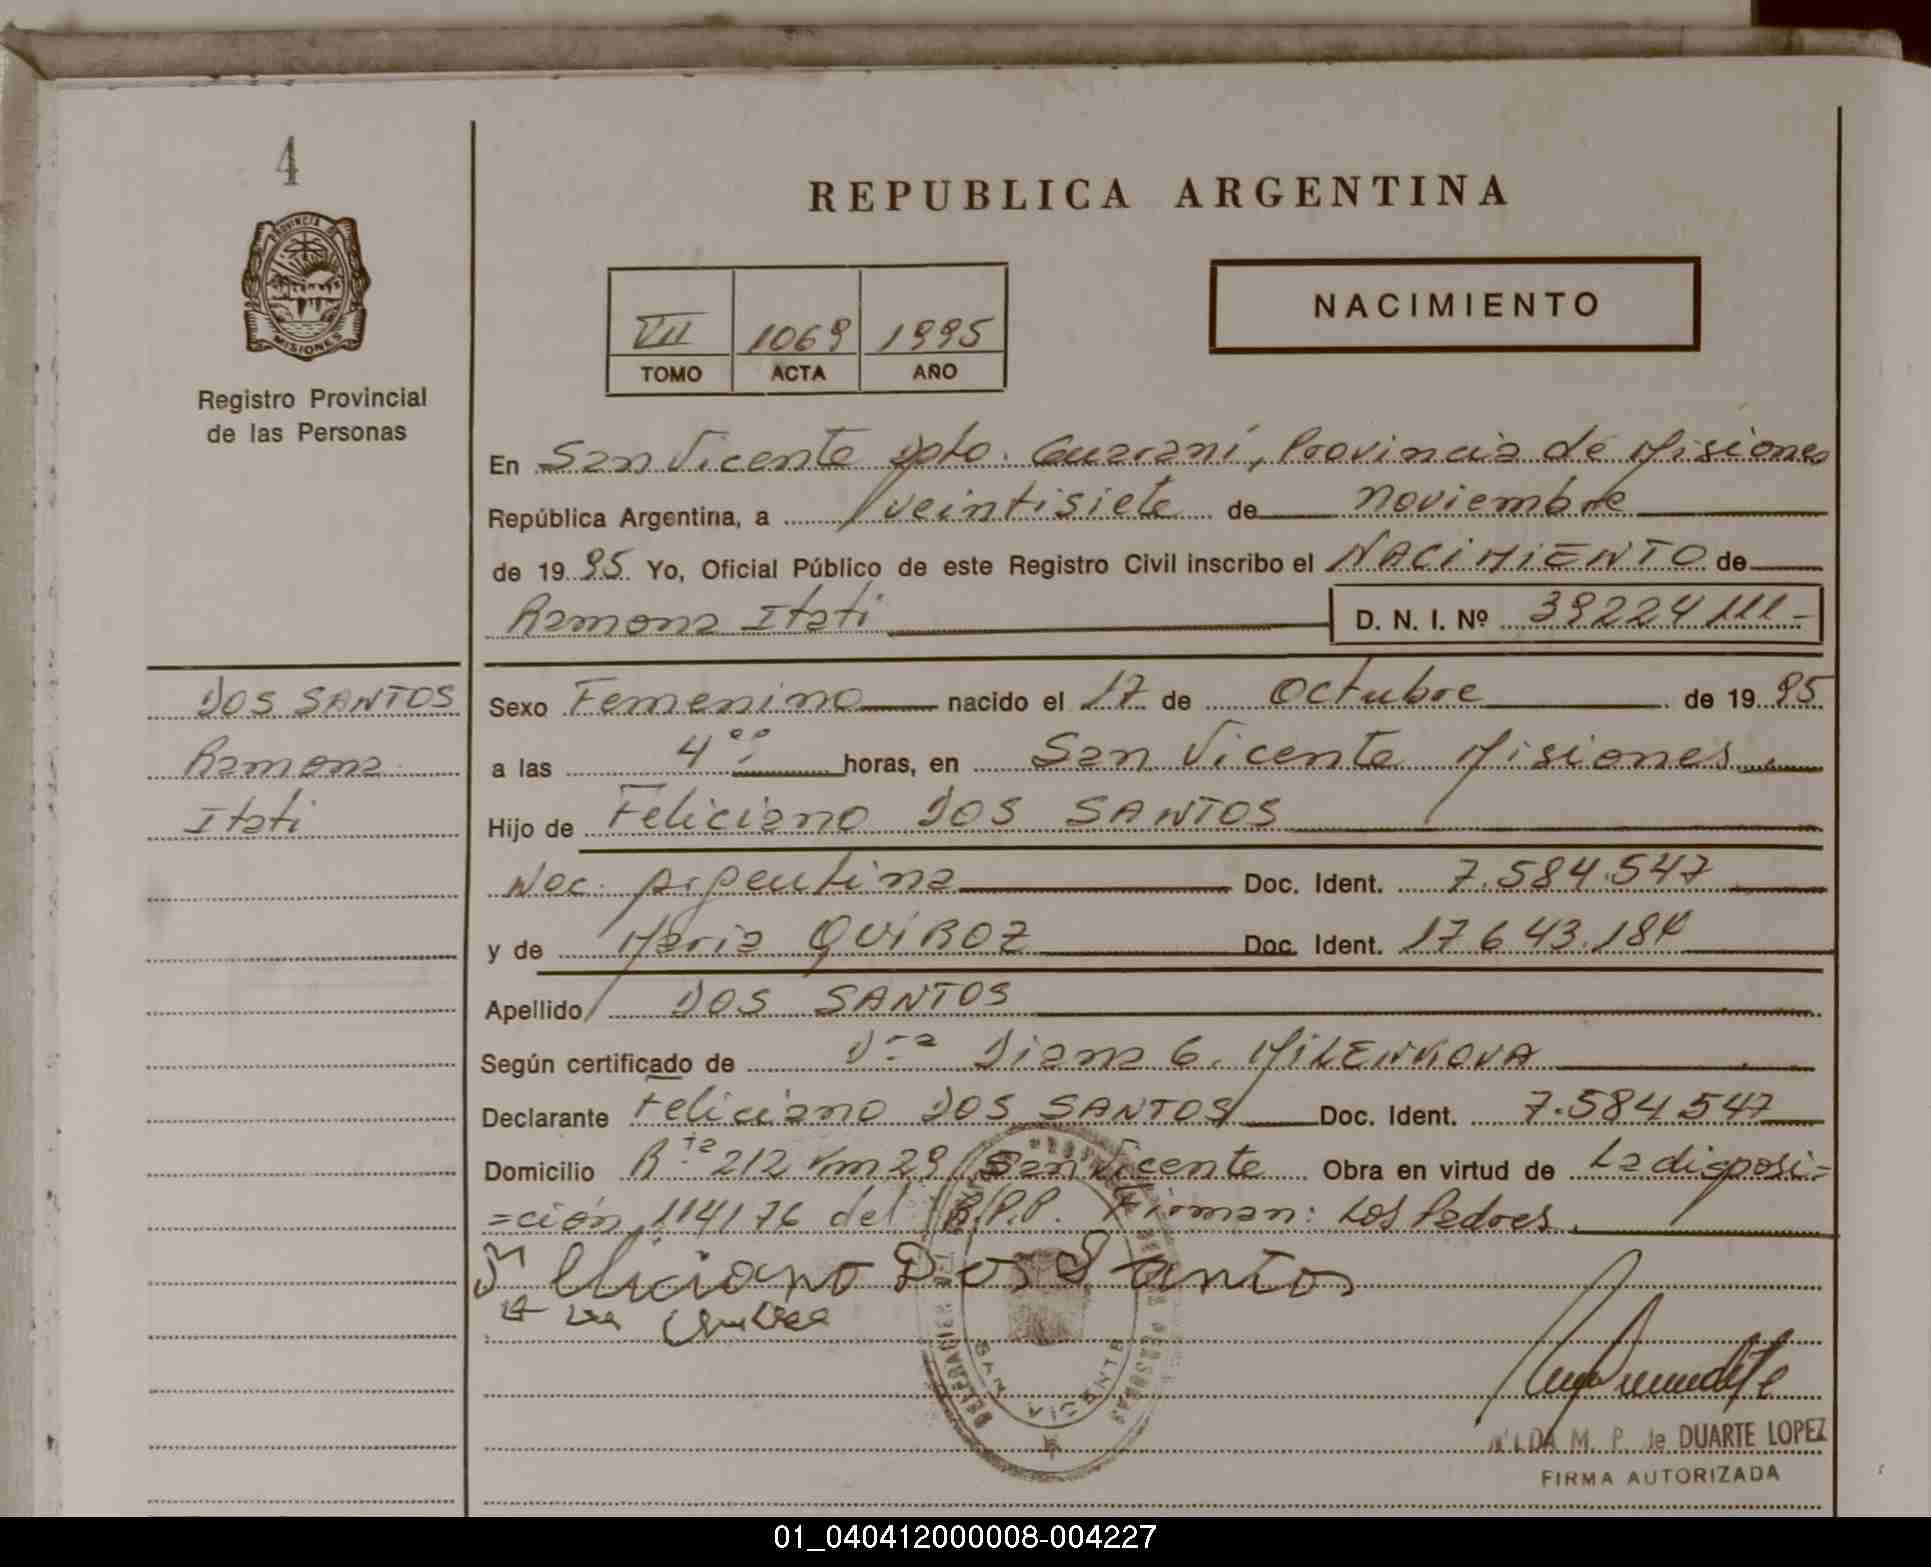 4
PROVINCIA DE
MISIONES
Registro Provincial
de las Personas
REPUBLICA ARGENTINA
VII 1069 1995
TOMO ACTA AÑO
NACIMIENTO
En San Vicente Dpto. Guaraní, Provincia de Misiones
República Argentina, a veintisiete de noviembre
de 1995 Yo, Oficial Público de este Registro Civil inscribo el NACIMIENTO de
Ramona Itati D. N. I. Nº 39224111-
DOS SANTOS
Ramona
Itati
Sexo Femenino nacido el 17 de Octubre de 1995
a las 4°° horas, en San Vicente Misiones.
Hijo de Feliciano DOS SANTOS
Nac. Argentina Doc. Ident. 7.584.547
y de Maria QUIROZ Doc. Ident. 17643.184
Apellido DOS SANTOS
Según certificado de Dra Diana G. MILENKOVA
Declarante Feliciano DOS SANTOS Doc. Ident. 7.584547
Domicilio Rta 212 Km 29 San Vicente Obra en virtud de La disposi=
=ción 114176 del R.P.P. Firman: Los Padres.
Dos Santos
SAN VICENTE
M. P. de DUARTE LOPEZ
FIRMA AUTORIZADA
01_040412000008-004227